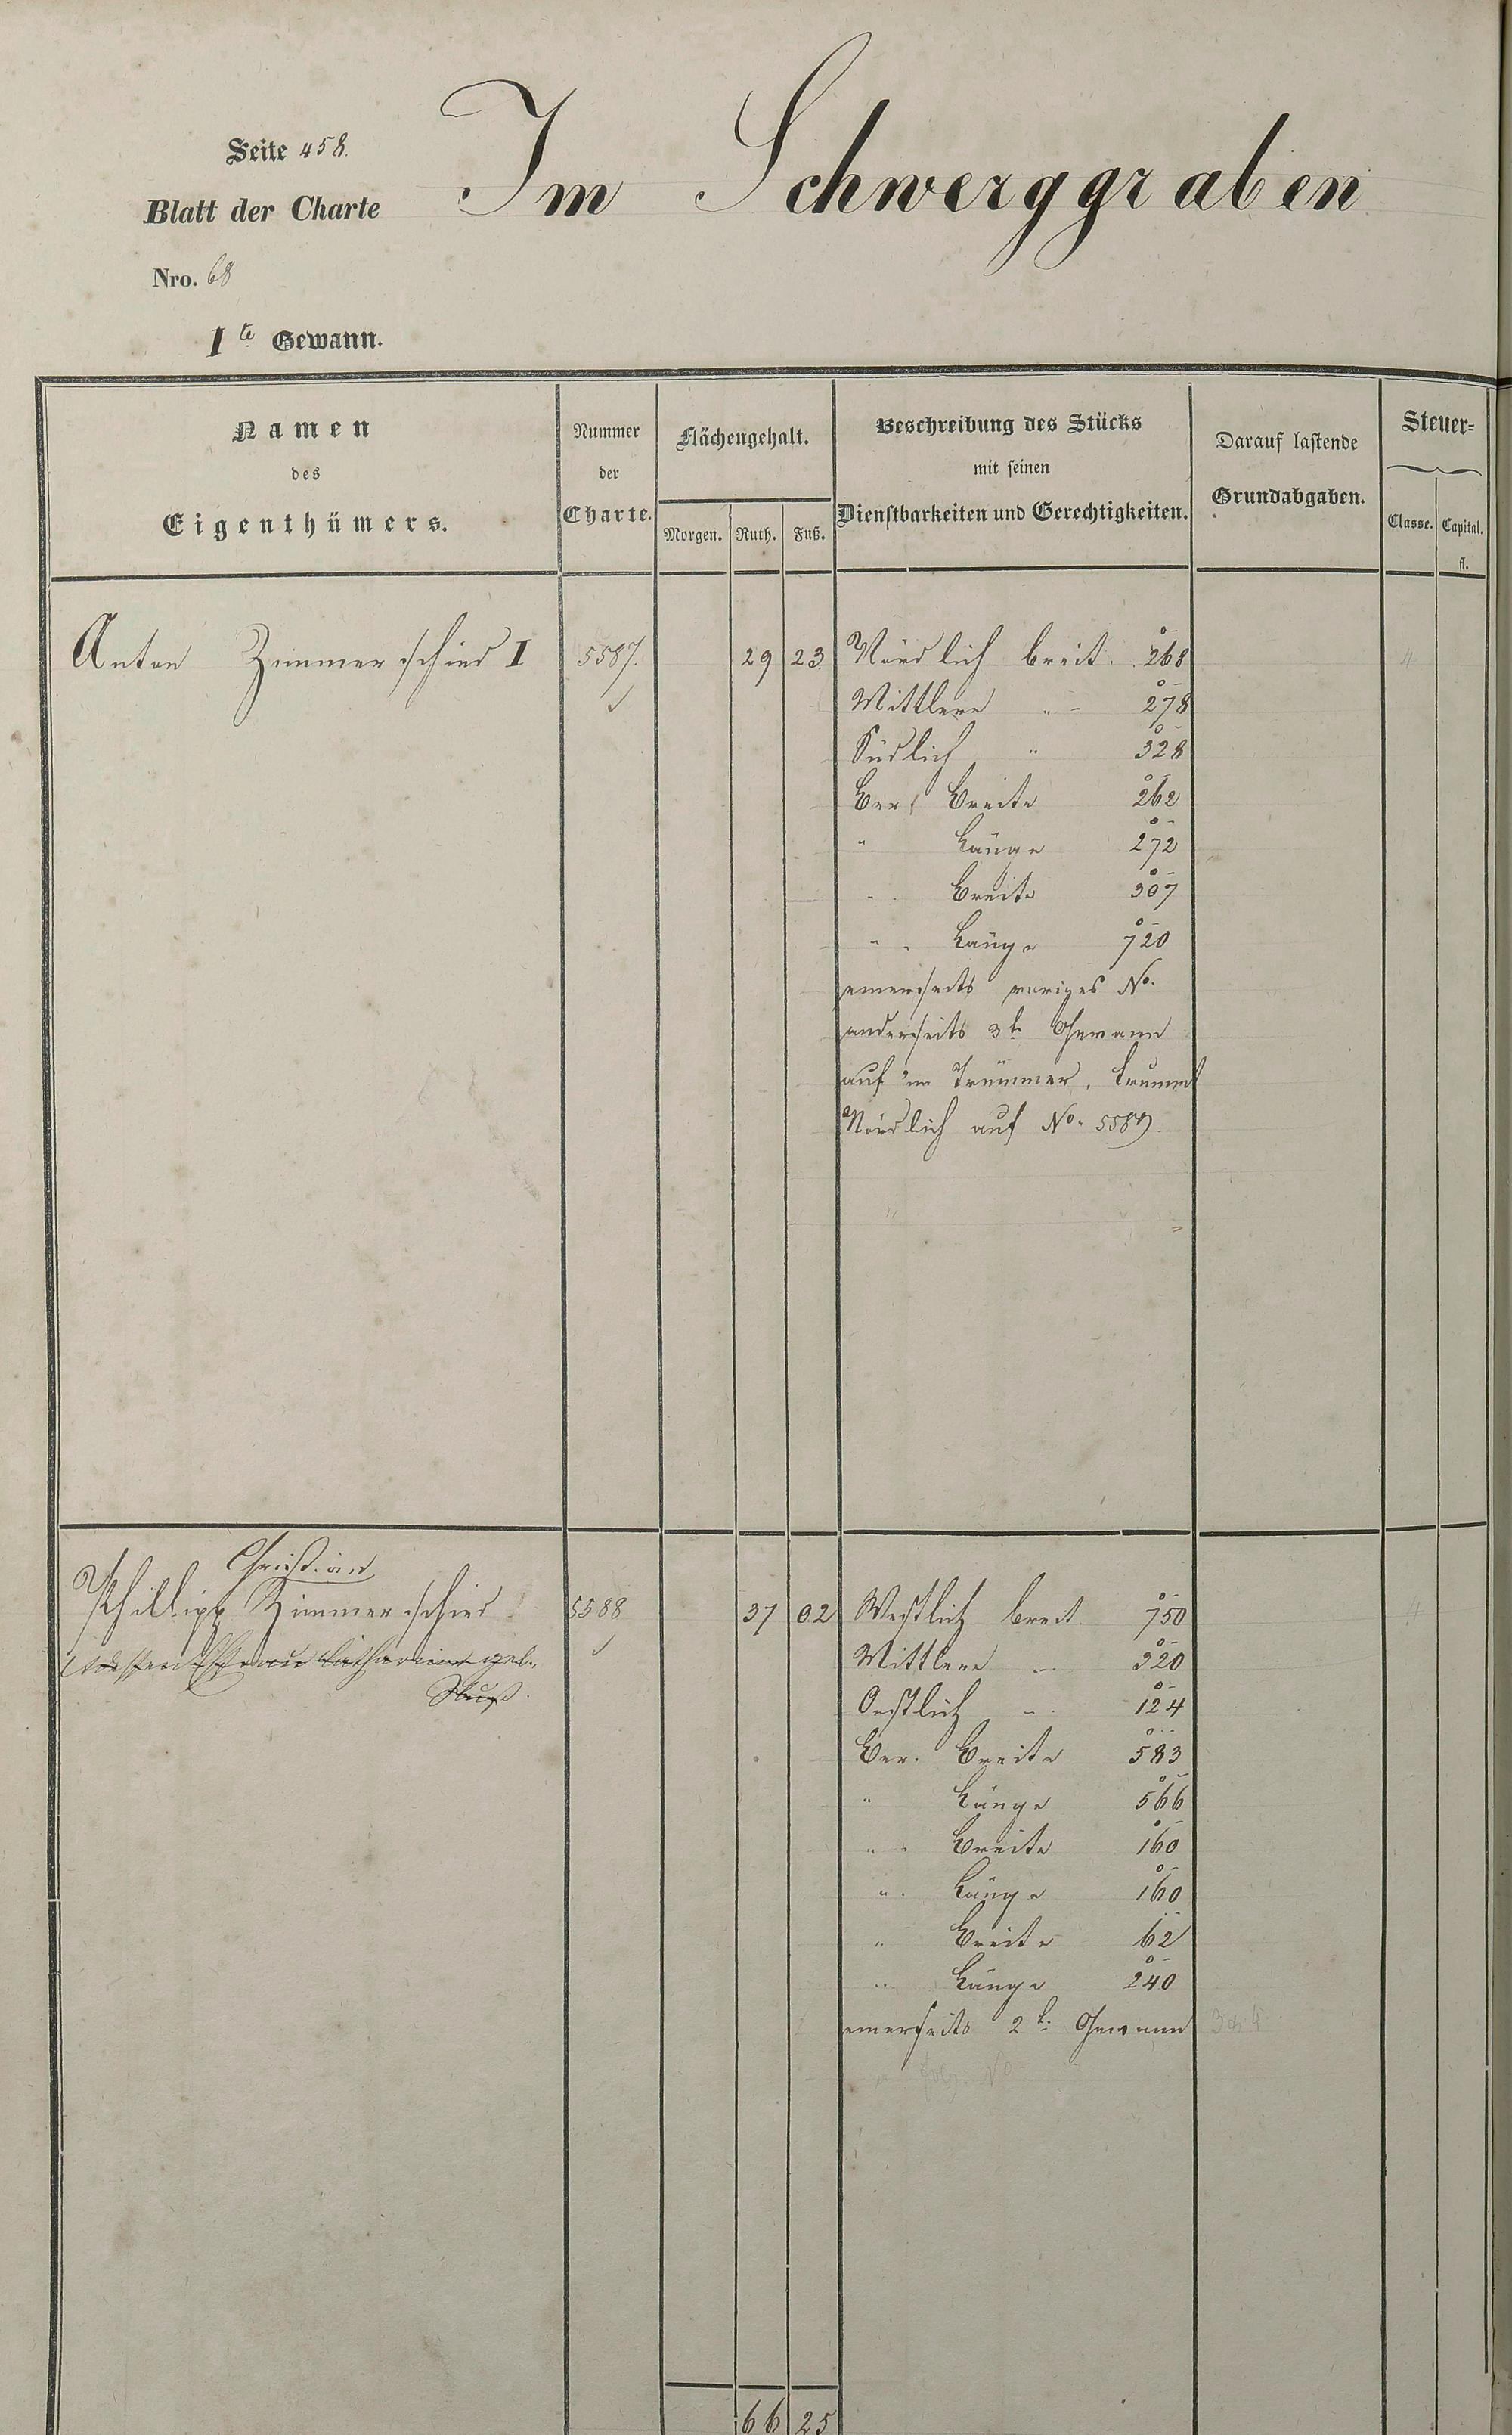 Seite 458.
Im Schwerggraben
Blatt der Charte
Nro. 68
1te Gewann.
Namen
des
Eigenthümers.
Nummer
der
Charte.
Flächengehalt.
Morgen. Ruth. Fuß.
Beschreibung des Stücks
mit seinen
Dienstbarkeiten und Gerechtigkeiten.
Darauf lastende
Grundabgaben.
Steuer-
Classe. Capital.
fl.
Anton Zimmerschied I 5587. 29 23 Nördlich breit. 268 4
Mittlere " 278
Südlich " 328
Ber. Breite 262
" Länge 272
" Breite 307
" Länge 720
einerseits voriges No.
anderseits 3te Gewann
auf'm Trümmer,
Nördlich auf No. 5589.
Christian
Phillipp Zimmerschied 5588 37 02 Westlich breit 750 4
dessen Ehefrau Catharina geb. Mittlere " 320
Oestlich " 124
Ber. Breite 583
" Länge 566
" Breite 160
" Länge 160
" Breite 62
" Länge 240
einerseits 2te Gewann
folg. No
66 25